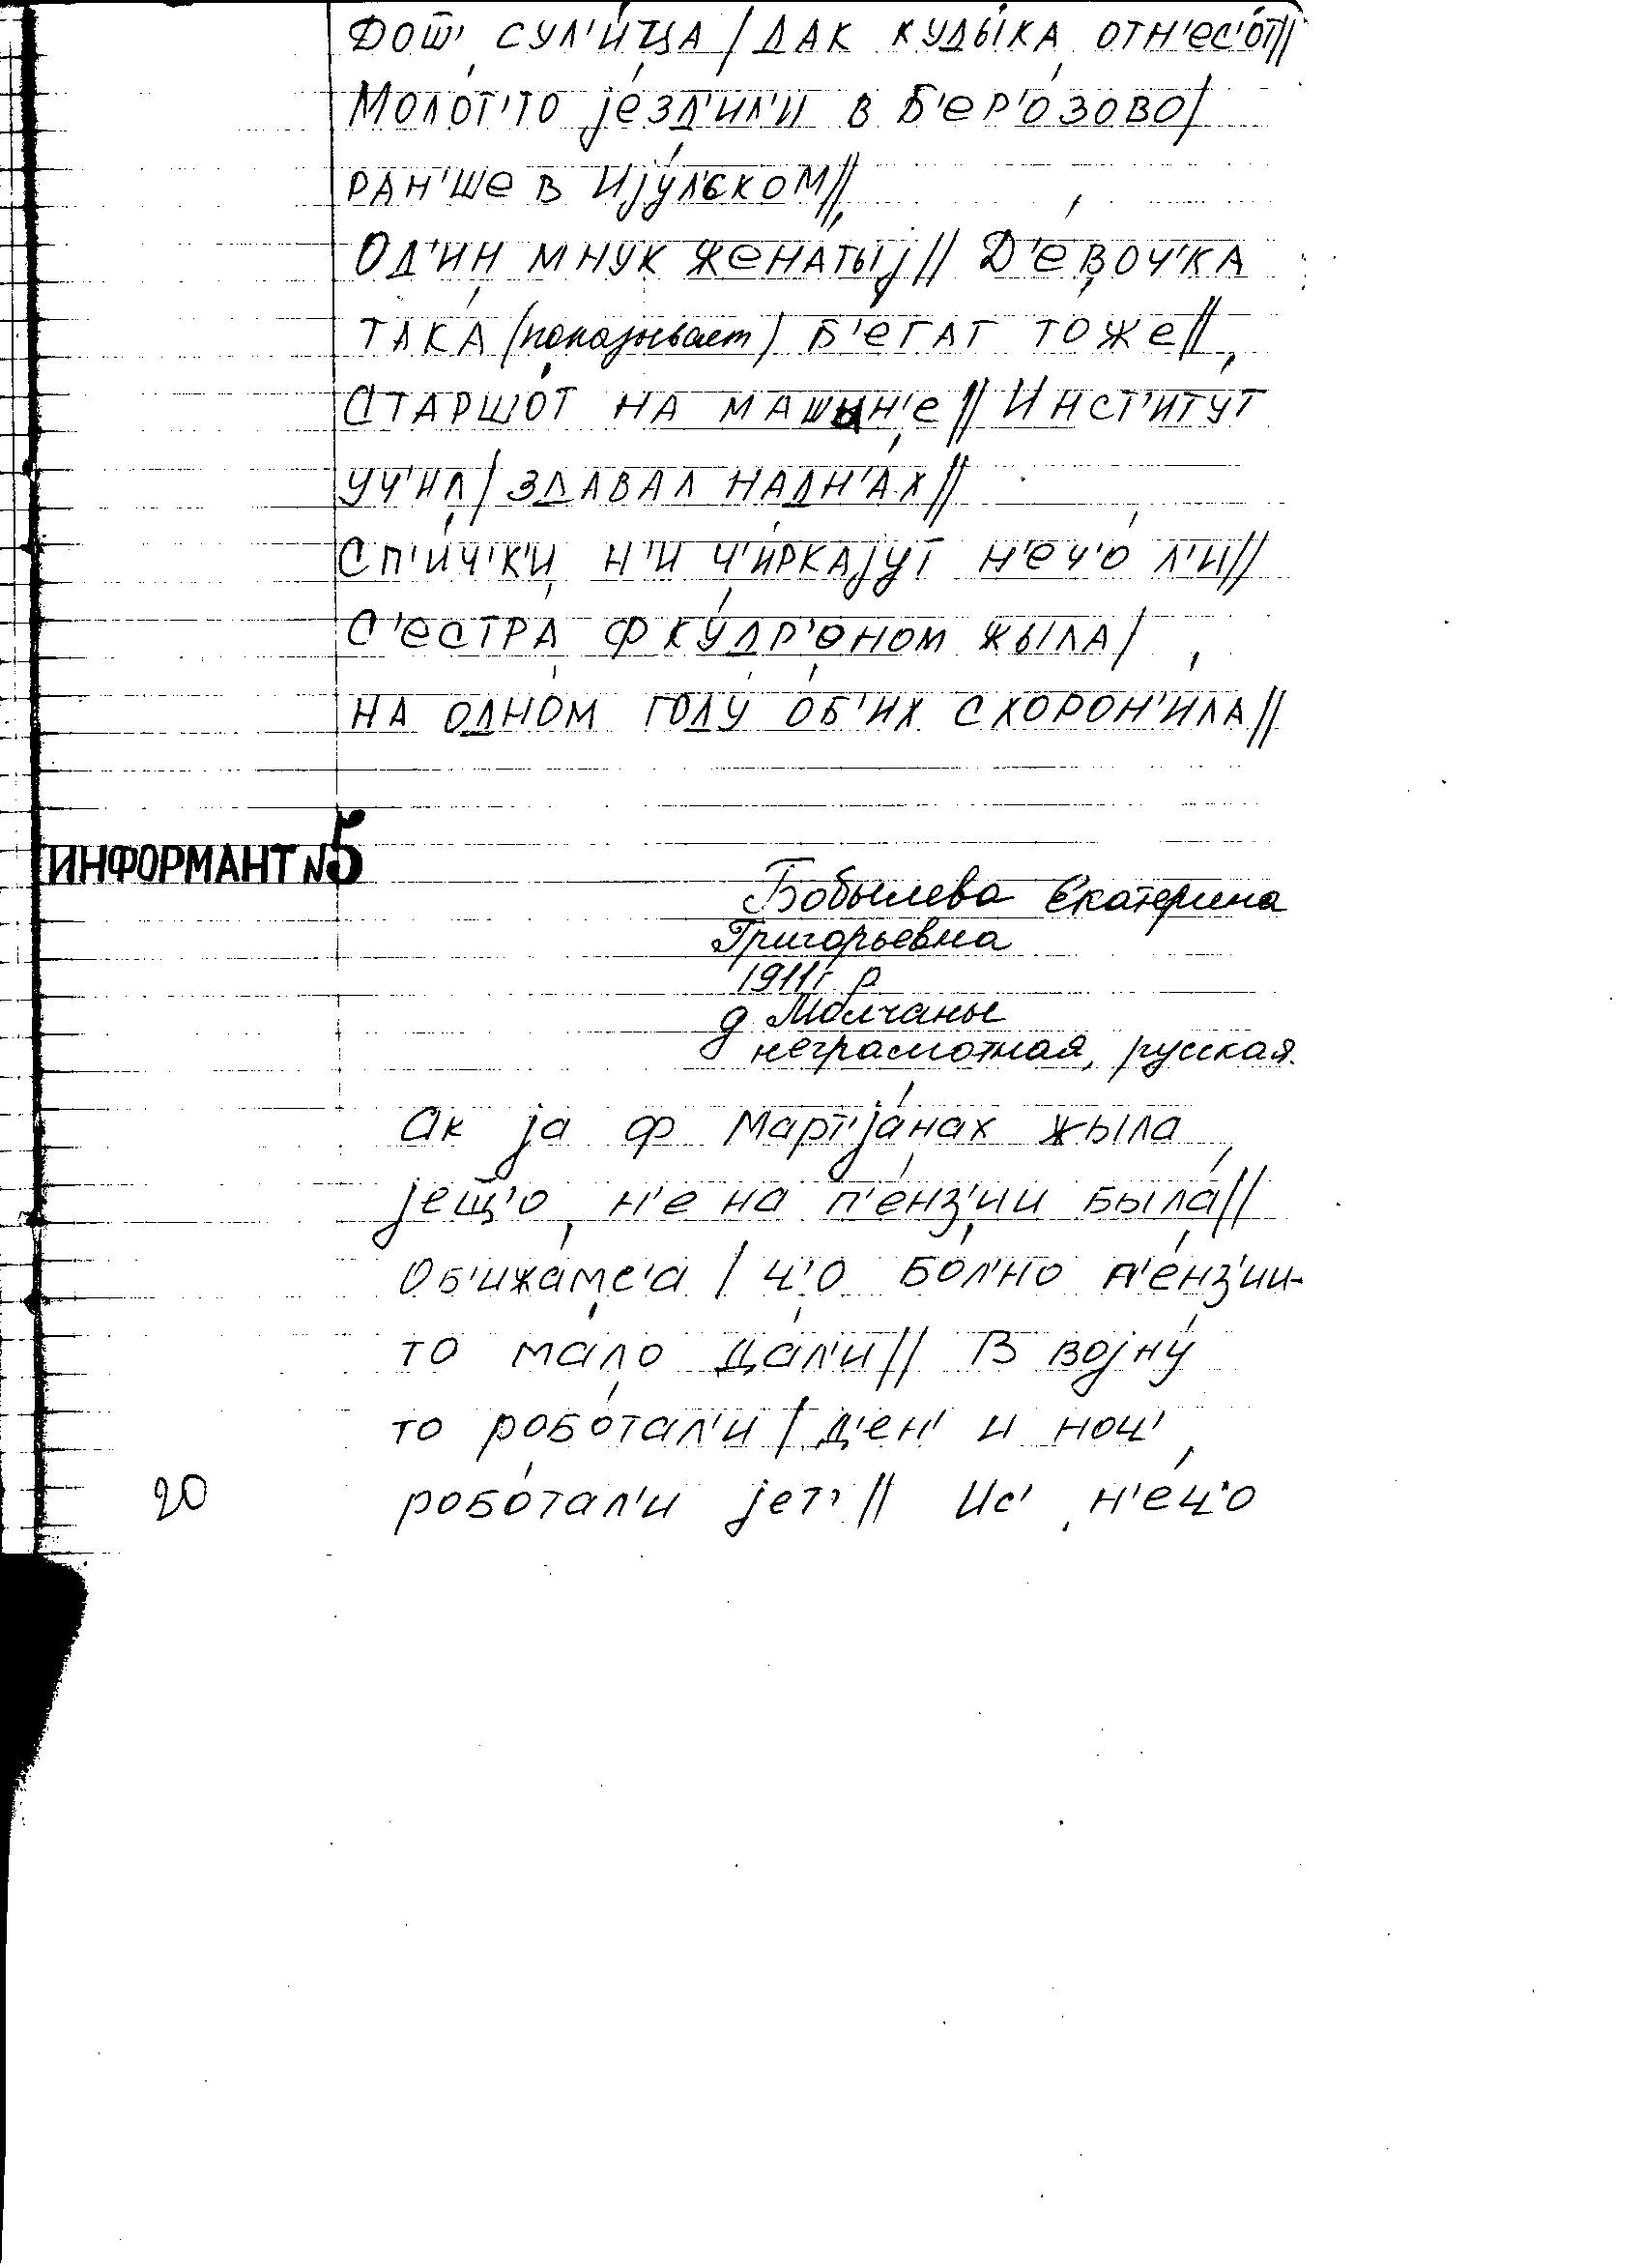 Дош' сул'и́ца / дак куды́ка отн'ес'о́т //
Молот'то је́зд'ил'и в Б'ер'о́зово /
ран'ше в Ију́л'ском //
Од'ин мнук жена́тыј // Д'е́воч'ка
така́ (показывает) б'е́гат то́же //
Старшо́т на машын'е // Инст'иту́т
уч'ил / здавал надн'а́х //
Сп'и́ч'к'и н'и ч'и́ркајут н'еч'о́ л'и //
С'естра́ ф ку́др'оном жыла́ /
на одно́м году́ о́б'их схорон'и́ла //
ИНФОРМАНТ №5
Бобылева Екатерина
Григорьевна
1911 г р
д Молчаны
неграмотная, русская.
Ак ја ф Март'ја́нах жыла
јещ'о́ н'е на п'е́нз'ии была́ //
Об'ижа́мс'а / ч'о бо́л'но п'е́нз'ии-
то ма́ло да́л'и // В војну́
то робо́тал'и / д'ен' и ноч'
робо́тал'и јет' // Ис' н'е́ч'о
20